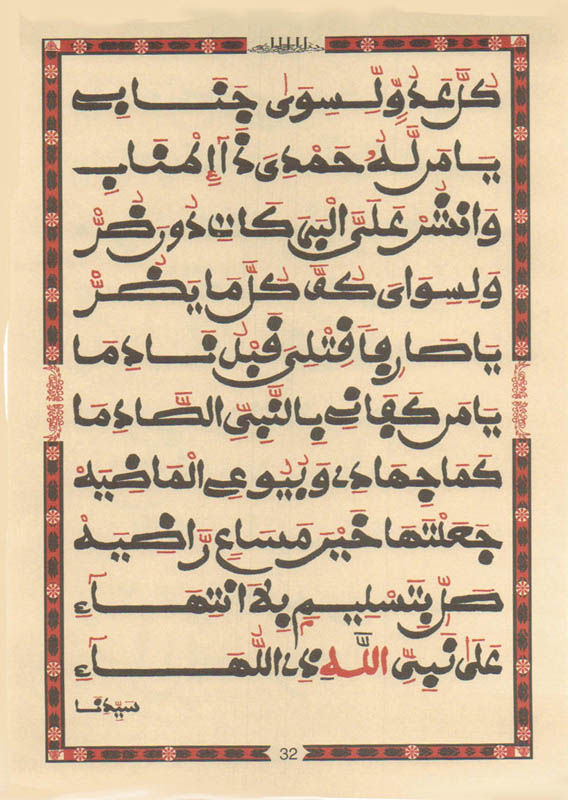 كل عدو لسوى جناب
يا من له حمدي ذا المناب
وانشر علي كان دون ضر
ولسواي كف كل ما يضر
يا صارفا قتلي قبل نادما
يا من كفاني بالنبي الصادما
كما جهادي وبيوعي الماضيه
جعلتها خير مساع راضيه
صل بتسليم بلا انتهاء
على نبي الله ذي اللهاء
سيدنا
32